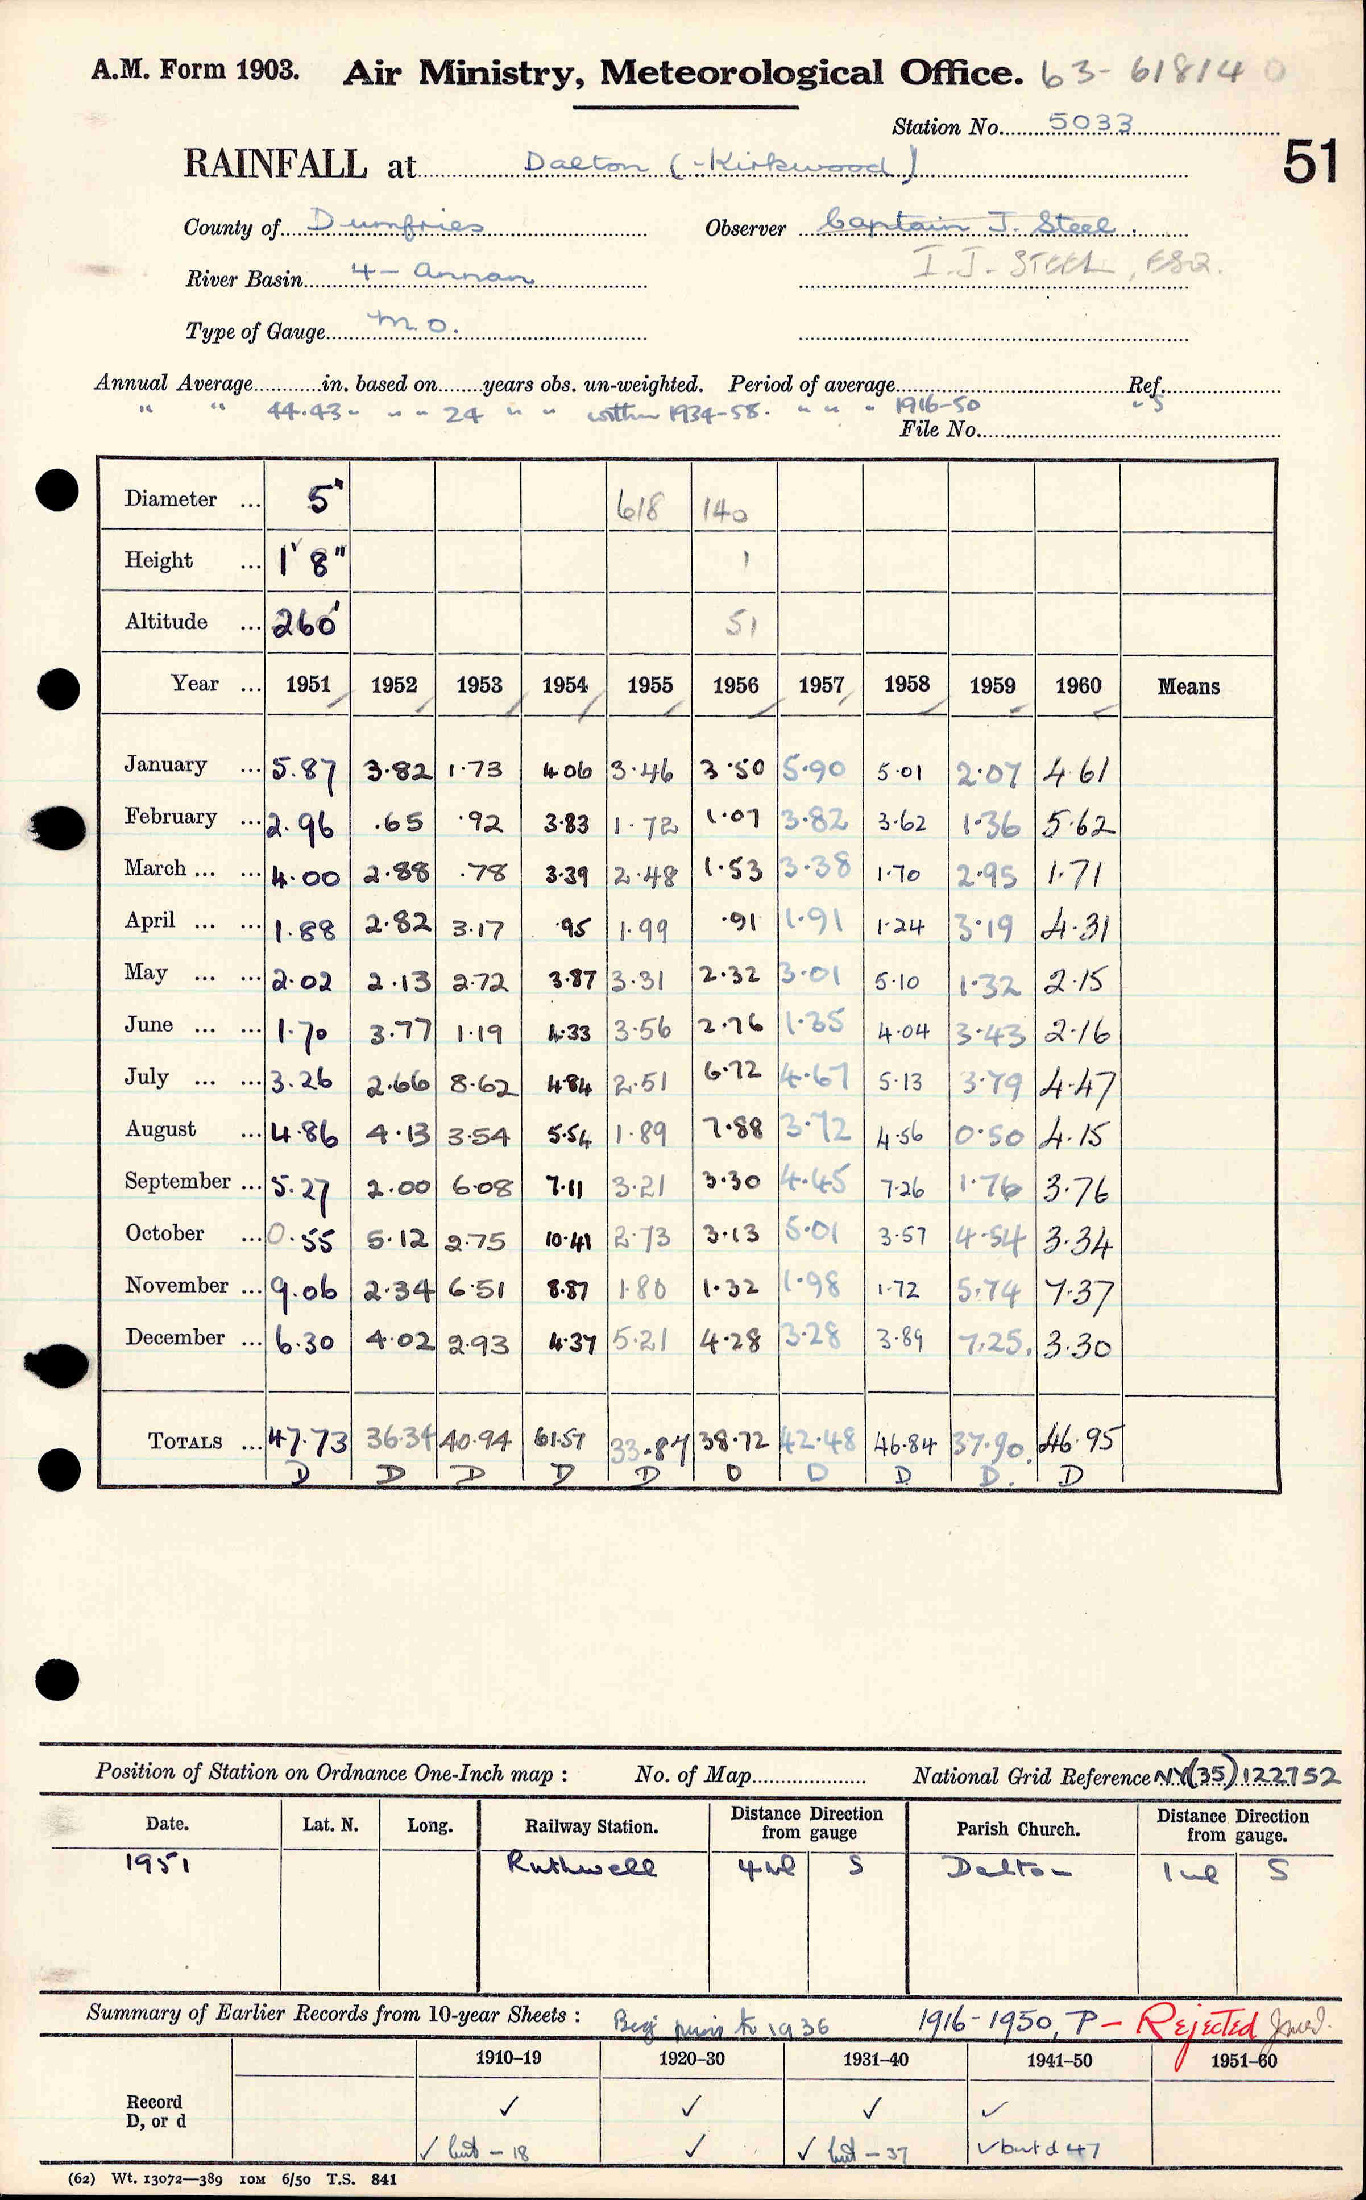 A.M. Form 1903. Air Ministry, Meteorological Office. 63- 61814 0
Station No. 5033
51
RAINFALL at Dalton (-Kirkwood)
County of Dumfries Observer Captain J. Steel.
River Basin 4 - Annan I. J. STEEL, ESQ.
Type of Gauge M.O.
Annual Average in. based on years obs. un-weighted. Period of average Ref.
" " 44.43 " " " 24 " " within 1934-58. " " " 1916-50 " 5
File No.
Diameter ... 5" 618 140
Height ... 1' 8" 1
Altitude ... 260' 51
Year ... 1951 1952 1953 1954 1955 1956 1957 1958 1959 1960 Means
January ... 5.87 3.82 1.73 4.06 3.46 3.50 5.90 5.01 2.07 4.61
February ... 2.96 .65 .92 3.83 1.72 1.07 3.82 3.62 1.36 5.62
March ... ... 4.00 2.88 .78 3.39 2.48 1.53 3.38 1.70 2.95 1.71
April ... ... 1.88 2.82 3.17 .95 1.99 .91 1.91 1.24 3.19 4.31
May ... ... 2.02 2.13 2.72 3.87 3.31 2.32 3.01 5.10 1.32 2.15
June ... ... 1.70 3.77 1.19 4.33 3.56 2.76 1.35 4.04 3.43 2.16
July ... ... 3.26 2.66 8.62 4.84 2.51 6.72 4.67 5.13 3.79 4.47
August ... 4.86 4.13 3.54 5.54 1.89 7.88 3.72 4.56 0.50 4.15
September ... 5.27 2.00 6.08 7.11 3.21 3.30 4.45 7.26 1.76 3.76
October ... 0.55 5.12 2.75 10.41 2.73 3.13 5.01 3.57 4.54 3.34
November ... 9.06 2.34 6.51 8.87 1.80 1.32 1.98 1.72 5.74 7.37
December ... 6.30 4.02 2.93 4.37 5.21 4.28 3.28 3.89 7.25. 3.30
TOTALS ... 47.73 36.34 40.94 61.57 33.87 38.72 42.48 46.84 37.90. 46.95
D D D D D D D D D. D
Position of Station on Ordnance One-Inch map : No. of Map National Grid Reference NY(35)122752
Date. Lat. N. Long. Railway Station. Distance Direction from gauge Parish Church. Distance Direction from gauge.
1951 Ruthwell 4 ml S Dalton 1 ml S
Summary of Earlier Records from 10-year Sheets : Beg. prior to 1936 1916-1950, P - Rejected
1910-19 1920-30 1931-40 1941-50 1951-60
Record ✓ ✓ ✓ ✓
D, or d
✓ but - 18 ✓ ✓ but - 37 ✓ but d 47
(62) Wt. 13072—389 10M 6/50 T.S. 841